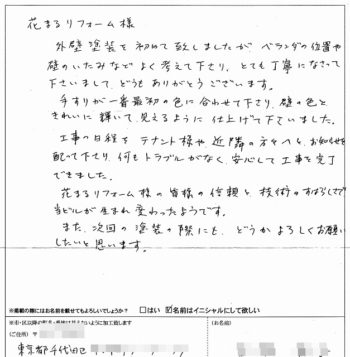 花まるリフォーム様
外壁塗装を初めて致しましたが ベランダの位置や
壁のいたみなど よく考えて下さり、とても丁寧になさって
下さいまして、どうも ありがとうございます。
手すりが一番最初の色に合わせて下さり、壁の色と
きれいに 輝いて、見えるように 仕上げて下さいました。
工事の日程も テナント様や 近隣の方々へも、お知らせを
配って下さり、何も トラブルがなく、安心して 工事を完了
できました。
花まるリフォーム様の 皆様の 信頼と 技術のすばらしさで
当ビルが 生まれ 変わったようです。
また、次回の 塗装の際にも、どうか よろしくお願い
したいと思います。
※掲載の際にはお名前を載せてもよろしいでしょうか? □はい ☑名前はイニシャルにして欲しい
(ご住所) 〒
(お名前)
東京都千代田区